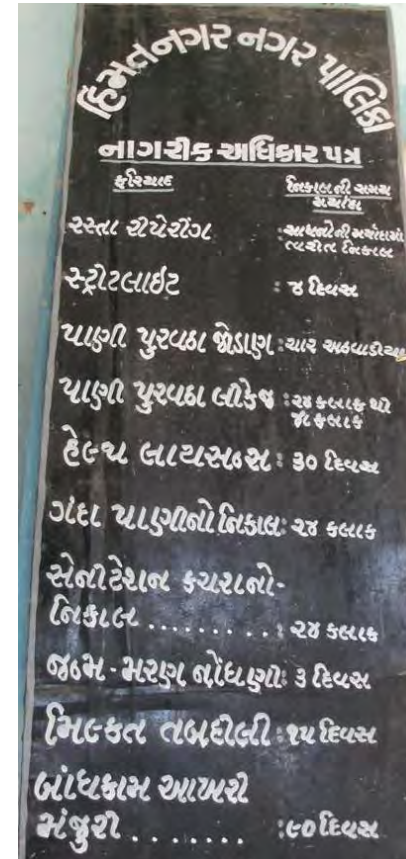 હિમતનગર નગર પાલિકા
નાગરીક અધિકાર પત્ર
ફરિયાદ નિકાલની સમય
મર્યાદા
રસ્તા રીપેરીંગ :સાધનોની મર્યાદામાં
ત્વરીત નિકાલ
સ્ટ્રીટલાઇટ : ૪ દિવસ
પાણી પુરવઠા જોડાણ :ચાર અઠવાડીયા
પાણી પુરવઠા લીકેજ :૨૪ કલાક થી
૪૮ કલાક
હેલ્થ લાયસન્સ : ૩૦ દિવસ
ગંદા પાણીનો નિકાલ: ૨૪ કલાક
સેનીટેશન કચરાનો-
નિકાલ ......... : ૨૪ કલાક
જન્મ - મરણ નોંધણી: ૩ દિવસ
મિલ્કત તબદીલી :૧૫ દિવસ
બાંધકામ આખરી
મંજુરી ........ :૯૦ દિવસ